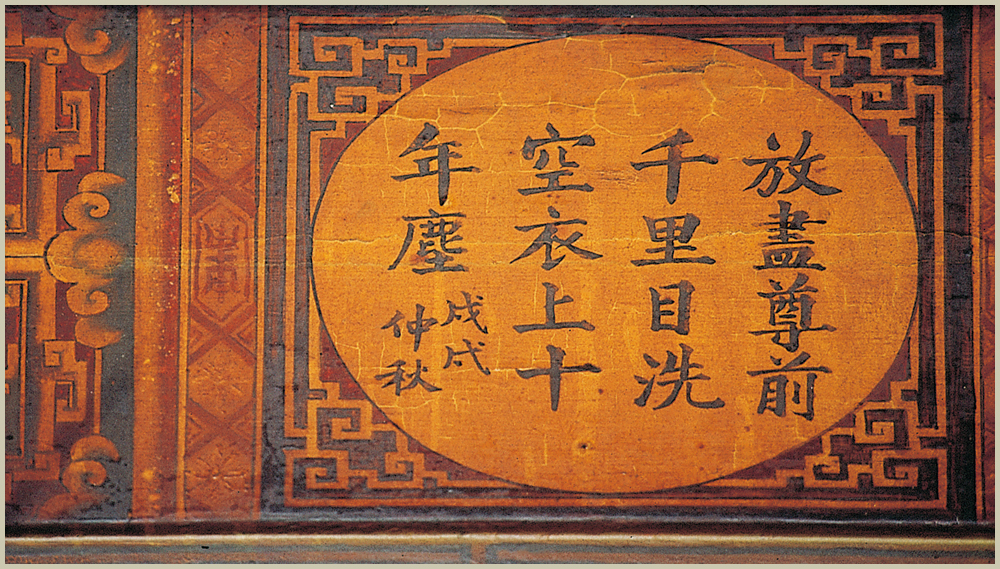 放盡尊前
千里目洗
空衣上十
年塵
戊戌
仲秋